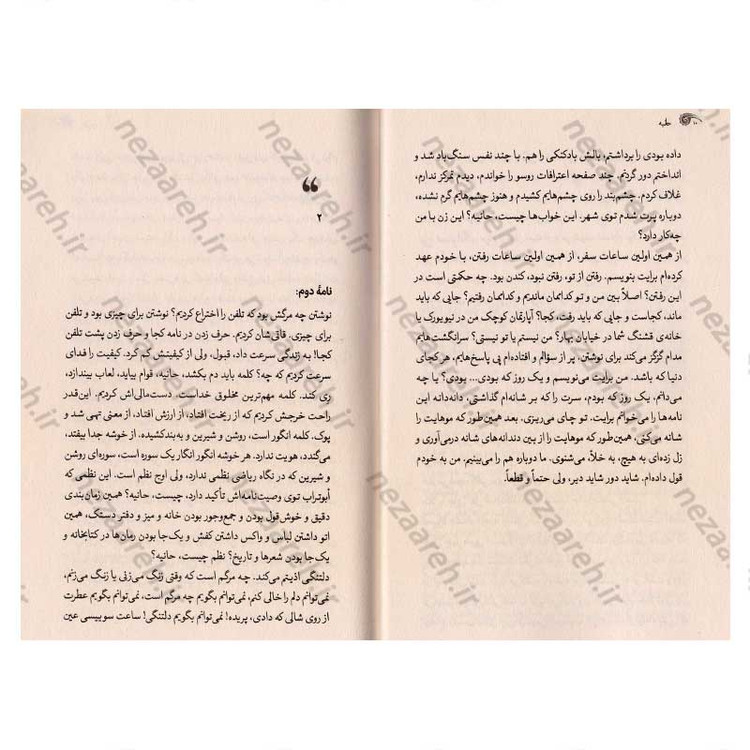 ۱۰ خطبه
داده بودی را برداشتم، بالش بادکنکی را هم. با چند نفس سنگ‌باد شد و
انداختم دور گردنم. چند صفحه اعترافات روسو را خواندم، دیدم تمرکز ندارم،
غلاف کردم. چشم‌بند را روی چشم‌هایم کشیدم و هنوز چشم‌هایم گرم نشده،
دوباره پرت شدم توی شهر. این خواب‌ها چیست، حانیه؟ این زن با من
چه‌کار دارد؟
از همین اولین ساعات سفر، از همین اولین ساعات رفتن، با خودم عهد
کرده‌ام برایت بنویسم. رفتن از تو، رفتن نبود، کندن بود. چه حکمتی است در
این رفتن؟ اصلاً بین من و تو کداممان ماندیم و کداممان رفتیم؟ جایی که باید
ماند، کجاست و جایی که باید رفت، کجا؟ آپارتمان کوچک من در نیویورک یا
خانه‌ی قشنگ شما در خیابان بهار؟ من نیستم یا تو نیستی؟ سرانگشت‌هایم
مدام گزگز می‌کند برای نوشتن. پر از سؤالم و افتاده‌ام پی پاسخ‌هایم، هر کجای
دنیا که باشد. من برایت می‌نویسم و یک روز که بودی... بودی؟ یا چه
می‌دانم، یک روز که بودم، سرت را که بر شانه‌ام گذاشتی، دانه‌دانه این
نامه‌ها را می‌خوانم برایت. تو چای می‌ریزی. بعد همین‌طور که موهایت را
شانه می‌کنی، همین‌طور که موهایت را از بین دندانه‌های شانه درمی‌آوری و
زل زده‌ای به هیچ، به خلأ، می‌شنوی. ما دوباره هم را می‌بینیم. من به خودم
قول داده‌ام. شاید دور شاید دیر، ولی حتماً و قطعاً.
❝
۲
نامهٔ دوم:
نوشتن چه مرگش بود که تلفن را اختراع کردیم؟ نوشتن برای چیزی بود و تلفن
برای چیزی. قاتی‌شان کردیم. حرف زدن در نامه کجا و حرف زدن پشت تلفن
کجا! به زندگی سرعت داد، قبول، ولی از کیفیتش کم کرد. کیفیت را فدای
سرعت کردیم که چه؟ کلمه باید دم بکشد، حانیه، قوام بیاید، لعاب بیندازد،
ری کند. کلمه مهم‌ترین مخلوق خداست. دست‌مالی‌اش کردیم. این‌قدر
راحت خرجش کردیم که از ریخت افتاد، از ارزش افتاد، از معنی تهی شد و
پوک. کلمه انگور است، روشن و شیرین و به‌بندکشیده. از خوشه جدا بیفتد،
می‌گندد، هویت ندارد. هر خوشه انگور انگار یک سوره است، سوره‌ای روشن
و شیرین که در نگاه ریاضی نظمی ندارد، ولی اوج نظم است. این نظمی که
ابوتراب توی وصیت‌نامه‌اش تأکید دارد، چیست، حانیه؟ همین زمان‌بندی
دقیق و خوش‌قول بودن و جمع‌وجور بودن خانه و میز و دفتر دستک، همین
اتو داشتن لباس و واکس داشتن کفش و یک‌جا بودن رمان‌ها در کتابخانه و
یک‌جا بودن شعرها و تاریخ؟ نظم چیست، حانیه؟
دلتنگی اذیتم می‌کند. چه مرگم است که وقتی زنگ می‌زنی یا زنگ می‌زنم،
نمی‌توانم دلم را خالی کنم، نمی‌توانم بگویم چه مرگم است، نمی‌توانم بگویم عطرت
از روی شالی که دادی، پریده! نمی‌توانم بگویم دلتنگی! ساعت سوییسی عین
nezaareh.ir
nezaareh.ir
nezaareh.ir
nezaareh.ir
nezaareh.ir
nezaareh.ir
nezaareh.ir
nezaareh.ir
nezaareh.ir